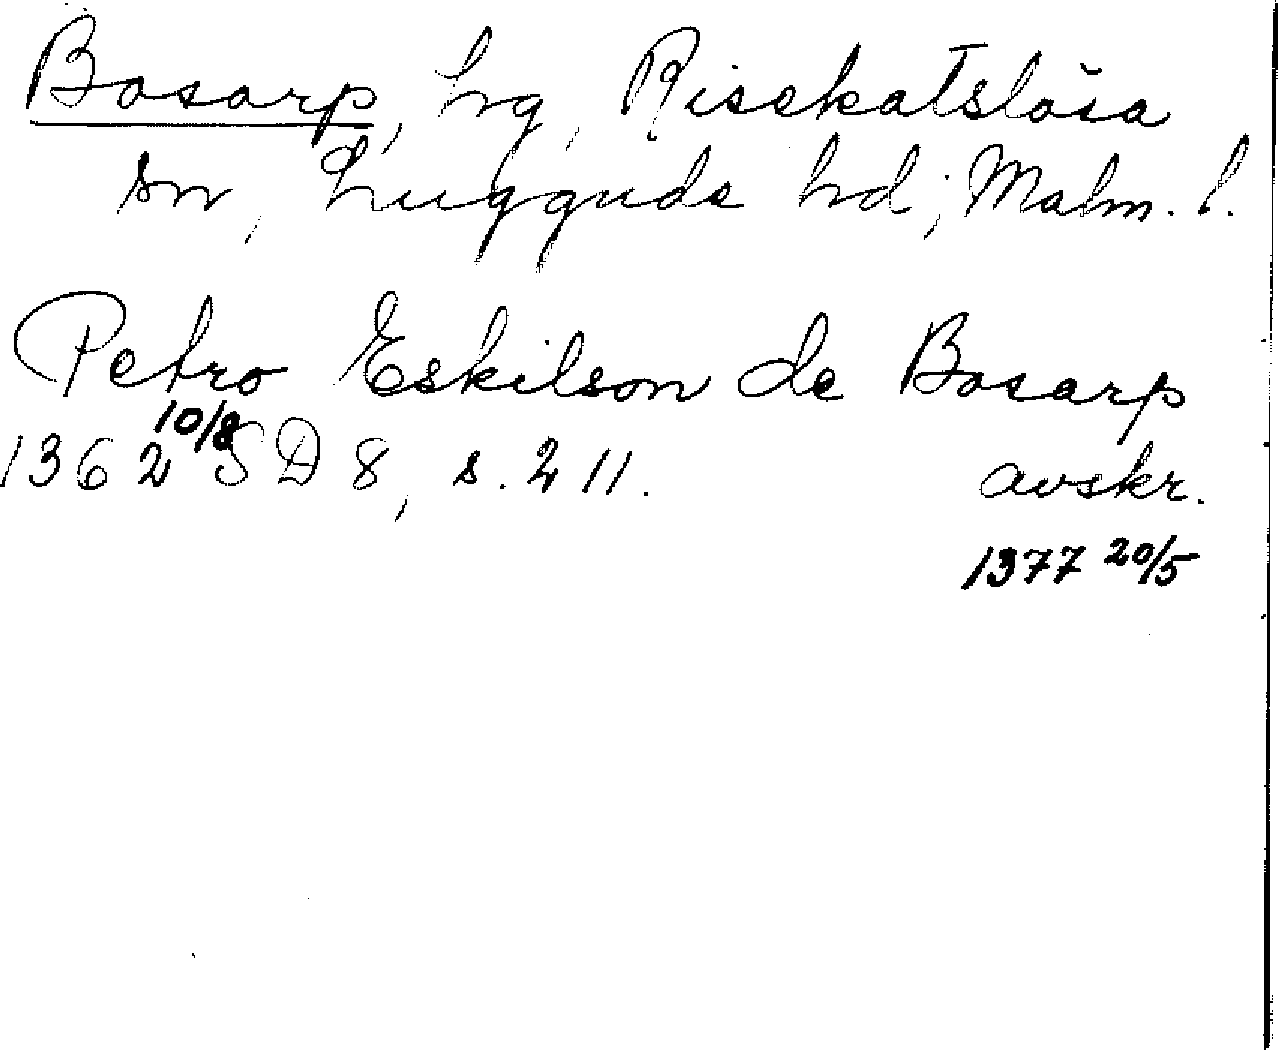 Bosarp, hg, Risekatslösa
sn, Luggude hd, Malm. l.
Petro Eskilson de Bosarp
1362 10/8 SD 8, s. 211. avskr.
1377 20/5